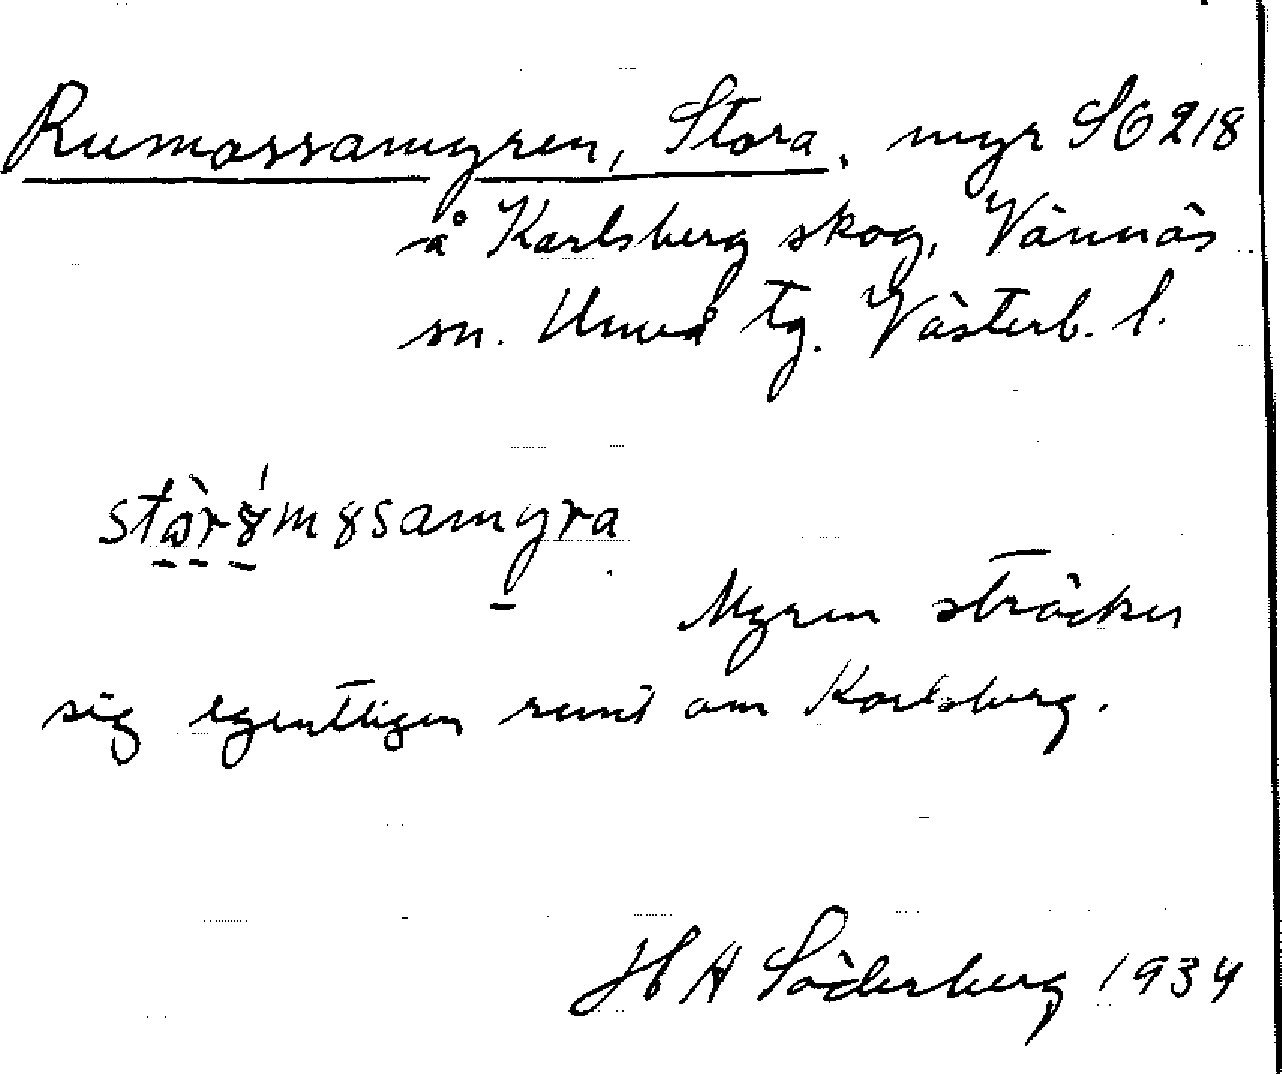 Rumossamyren, Stora, myr SO 218
å Karlsberg skog, Vännäs
sn. Umeå tg. Västerb. l.
Myren sträcker
sig egentligen runt om Karlsberg.
H A Söderberg 1934